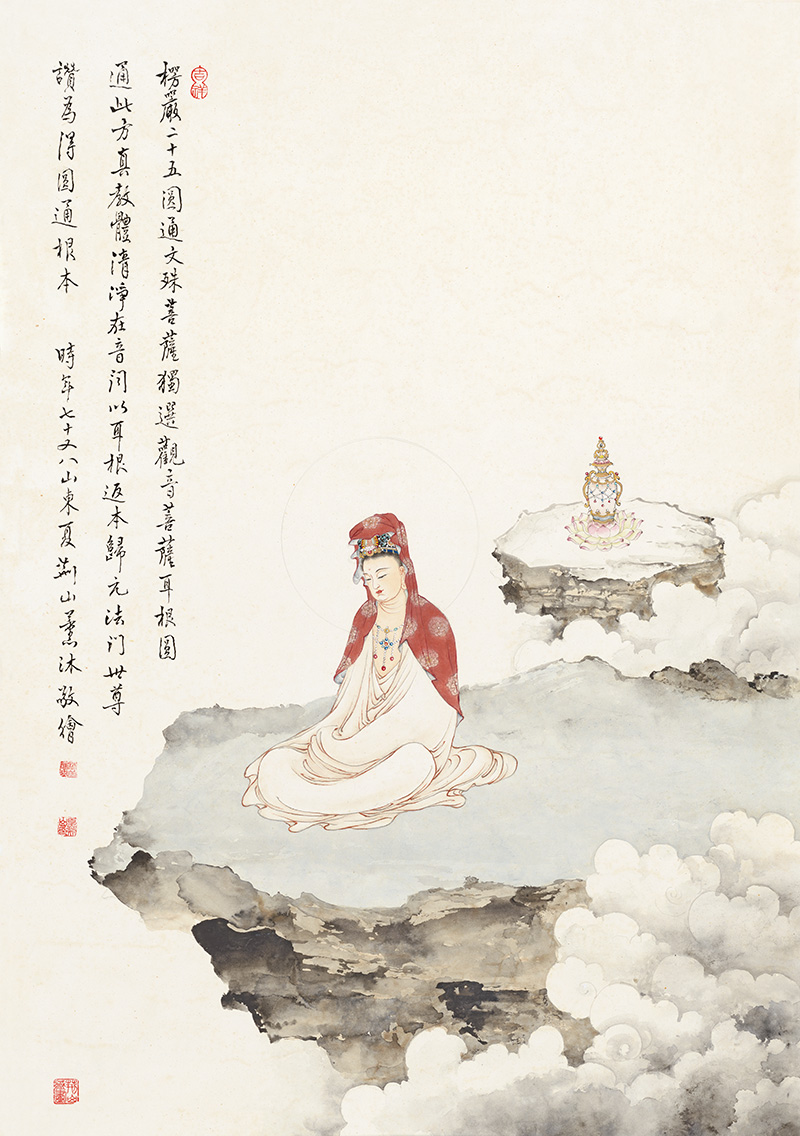 楞嚴二十五圓通文殊菩薩獨選觀音菩薩耳根圓
通此方真教體清淨在音聞以耳根返本歸元法门世尊
讚為得圓通根本
時年七十又八山東夏荊山薰沐敬繪
吉祥